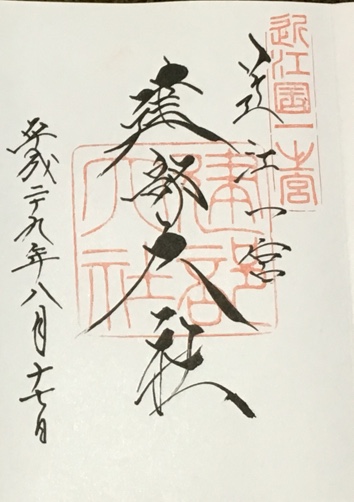 近江國一之宮
近江一宮
建部大社
建部大社
平成二十九年八月十七日